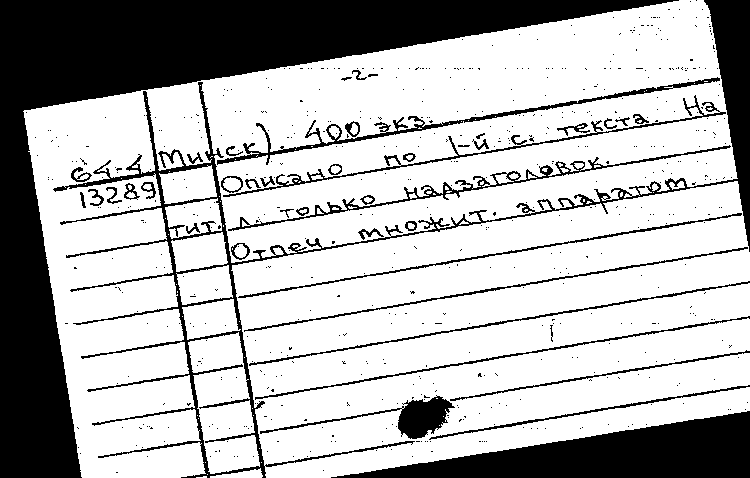 -2-
64-4 Минск). 400 экз.
13289 Описано по 1-й с. текста. На
тит. л. только надзаголовок.
Отпеч. множит. аппаратом.